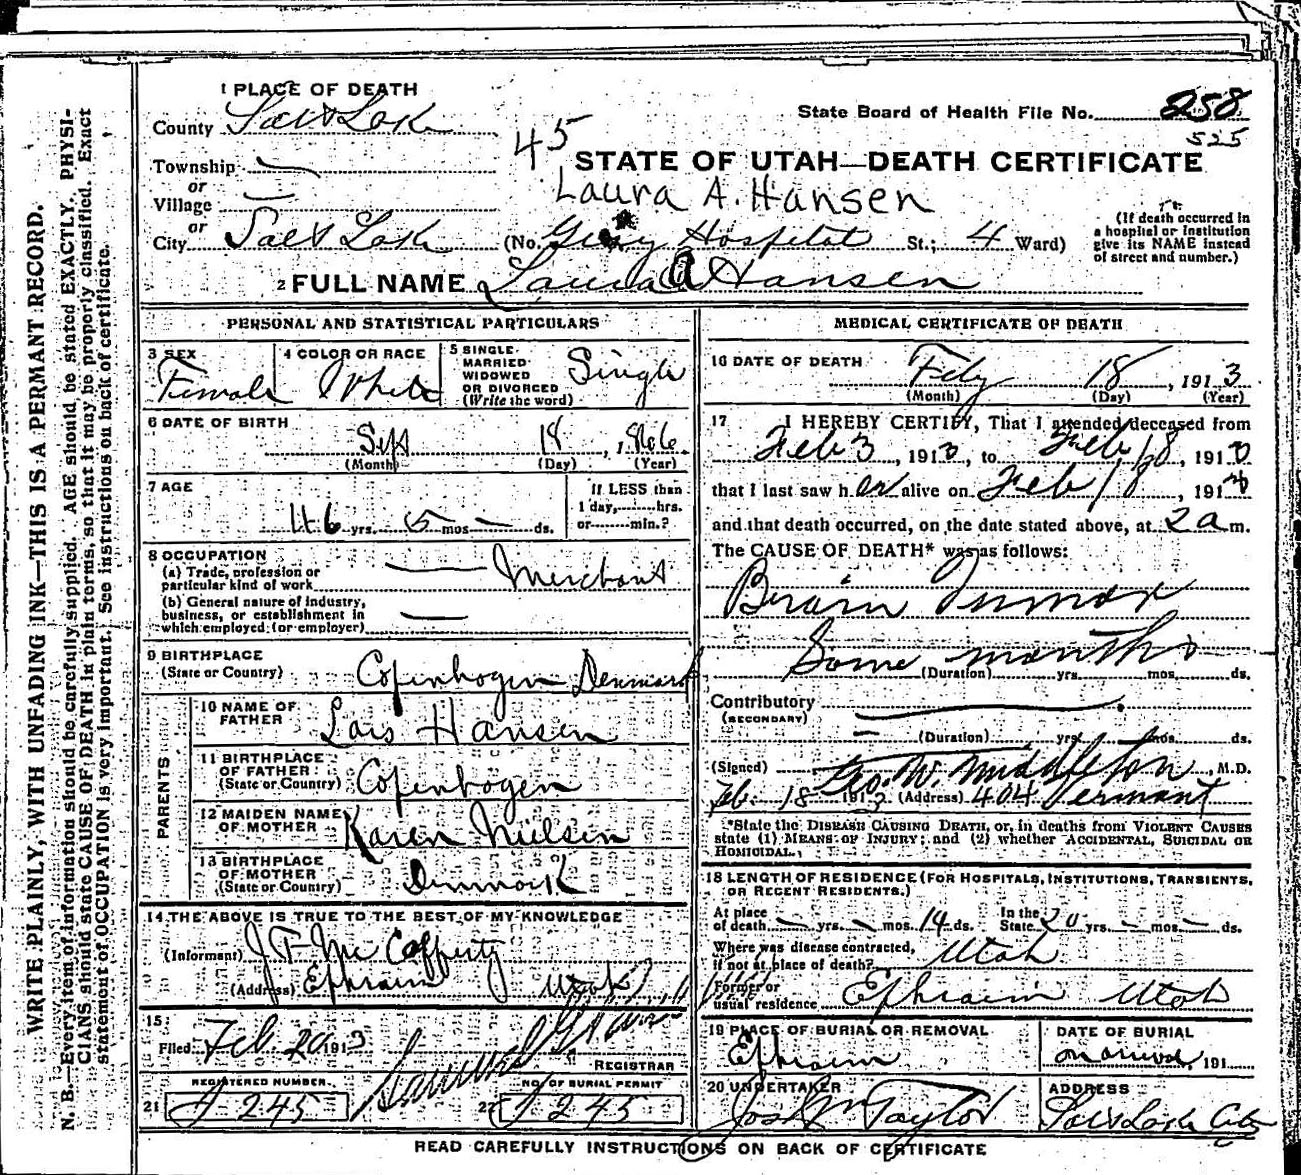 WRITE PLAINLY, WITH UNFADING INK—THIS IS A PERMANT RECORD.
N. B.—Every item of information should be carefully supplied. AGE should be stated EXACTLY. PHYSI-
CIANS should state CAUSE OF DEATH in plain terms, so that it may be properly classified. Exact
statement of OCCUPATION is very important. See instructions on back of certificate.
1 PLACE OF DEATH
County Salt Lake
State Board of Health File No. 258
525
45
STATE OF UTAH—DEATH CERTIFICATE
Township —
or
Village —
or
Laura A. Hansen
City Salt Lake (No. Hospital St.; 4 Ward)
(If death occurred in
a hospital or institution
give its NAME instead
of street and number.)
2 FULL NAME Laura A Hansen
PERSONAL AND STATISTICAL PARTICULARS
3 SEX Female
4 COLOR OR RACE White
5 SINGLE
MARRIED
WIDOWED
OR DIVORCED
(Write the word) Single
6 DATE OF BIRTH
Sept 18, 1866
(Month) (Day) (Year)
7 AGE
46 yrs. 5 mos — ds.
If LESS than
1 day, hrs.
or min.?
8 OCCUPATION
(a) Trade, profession or
particular kind of work — Merchant
(b) General nature of industry,
business, or establishment in
which employed (or employer) —
9 BIRTHPLACE
(State or Country) Copenhagen Denmark
PARENTS
10 NAME OF
FATHER Lars Hansen
11 BIRTHPLACE
OF FATHER
(State or Country) Copenhagen
12 MAIDEN NAME
OF MOTHER Karen Nielsen
13 BIRTHPLACE
OF MOTHER
(State or Country) Denmark
14 THE ABOVE IS TRUE TO THE BEST OF MY KNOWLEDGE
(Informant) J T Mc Cafferty
(Address) Ephraim Utah
15
Filed Feb. 20 1913
REGISTRAR
REGISTERED NUMBER
21 J 245
NO. OF BURIAL PERMIT
22 J 245
MEDICAL CERTIFICATE OF DEATH
16 DATE OF DEATH
Feby 18, 1913
(Month) (Day) (Year)
17 I HEREBY CERTIFY, That I attended deceased from
Feb 3, 1913, to Feb 18, 1913
that I last saw her alive on Feb 18, 1913
and that death occurred, on the date stated above, at 2 a m.
The CAUSE OF DEATH* was as follows:
Brain Tumor
Some months
(Duration) yrs. mos. ds.
Contributory —
(SECONDARY)
— (Duration) yrs. mos. ds.
(Signed) Geo. W. Middleton, M.D.
Feb. 18 1913 (Address) 404 Vermont
*State the DISEASE CAUSING DEATH, or, in deaths from VIOLENT CAUSES
state (1) MEANS OF INJURY; and (2) whether ACCIDENTAL, SUICIDAL OR
HOMICIDAL.
18 LENGTH OF RESIDENCE (FOR HOSPITALS, INSTITUTIONS, TRANSIENTS,
OR RECENT RESIDENTS.)
At place
of death — yrs. — mos. 14 ds.
In the
State 20 yrs. — mos. — ds.
Where was disease contracted,
if not at place of death? Utah
Former or
usual residence Ephraim Utah
19 PLACE OF BURIAL OR REMOVAL
Ephraim
DATE OF BURIAL
on arrival, 191
20 UNDERTAKER
Jos. Wm Taylor
ADDRESS
Salt Lake City
READ CAREFULLY INSTRUCTIONS ON BACK OF CERTIFICATE